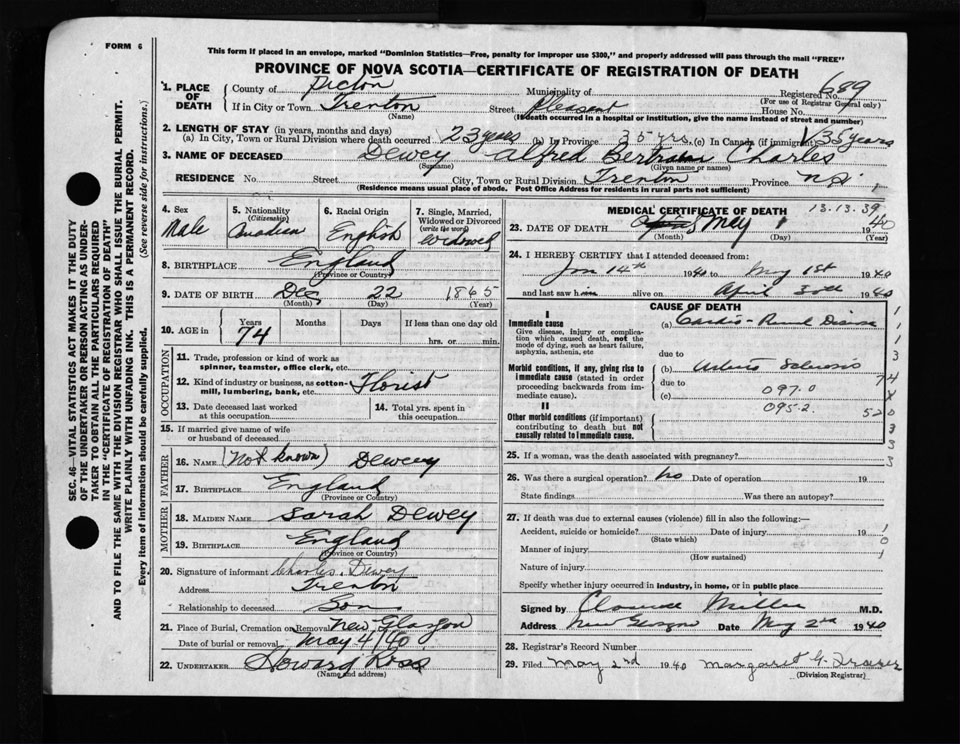 FORM 6
This form if placed in an envelope, marked "Dominion Statistics—Free, penalty for improper use $300," and properly addressed will pass through the mail "FREE"
PROVINCE OF NOVA SCOTIA—CERTIFICATE OF REGISTRATION OF DEATH
SEC. 46—VITAL STATISTICS ACT MAKES IT THE DUTY
OF THE UNDERTAKER OR PERSON ACTING AS UNDER-
TAKER TO OBTAIN ALL THE PARTICULARS REQUIRED
IN THE "CERTIFICATE OF REGISTRATION OF DEATH"
AND TO FILE THE SAME WITH THE DIVISION REGISTRAR WHO SHALL ISSUE THE BURIAL PERMIT.
WRITE PLAINLY WITH UNFADING INK. THIS IS A PERMANENT RECORD.
Every item of information should be carefully supplied. (See reverse side for instructions.)
1. PLACE OF DEATH
County of Pictou Municipality of Registered No. 689
(For use of Registrar General only)
If in City or Town Trenton Street Pleasant House No.
(Name) (If death occurred in a hospital or institution, give the name instead of street and number)
2. LENGTH OF STAY (in years, months and days)
(a) In City, Town or Rural Division where death occurred 23 years (b) In Province 35 yrs. (c) In Canada (if immigrant) 35 years
3. NAME OF DECEASED Dewey Alfred Bertram Charles
(Surname) (Given name or names)
RESIDENCE No. Street City, Town or Rural Division Trenton Province N.S.
(Residence means usual place of abode. Post Office Address for residents in rural parts not sufficient)
4. Sex Male
5. Nationality (Citizenship) Canadian
6. Racial Origin English
7. Single, Married, Widowed or Divorced (write the word) Widowed
8. BIRTHPLACE England
(Province or Country)
9. DATE OF BIRTH Dec 22 1865
(Month) (Day) (Year)
10. AGE in Years Months Days If less than one day old
74 hrs. or min.
OCCUPATION
11. Trade, profession or kind of work as spinner, teamster, office clerk, etc.
12. Kind of industry or business, as cotton-mill, lumbering, bank, etc. Florist
13. Date deceased last worked at this occupation
14. Total yrs. spent in this occupation
15. If married give name of wife or husband of deceased
FATHER
16. NAME (Not known) Dewey
17. BIRTHPLACE England
(Province or Country)
MOTHER
18. MAIDEN NAME Sarah Dewey
19. BIRTHPLACE England
(Province or Country)
20. Signature of informant Charles Dewey
Address Trenton
Relationship to deceased Son
21. Place of Burial, Cremation or Removal New Glasgow
Date of burial or removal May 4/40
22. UNDERTAKER Howard Ross
(Name and address)
MEDICAL CERTIFICATE OF DEATH 13.13.39
23. DATE OF DEATH May 1 1940
(Month) (Day) (Year)
24. I HEREBY CERTIFY that I attended deceased from:
Jan 14th 1940 to May 1st 1940
and last saw him alive on April 30th 1940
CAUSE OF DEATH
I
Immediate cause
Give disease, injury or complication which caused death, not the mode of dying, such as heart failure, asphyxia, asthenia, etc
(a) Cardio-Renal Disease
due to
Morbid conditions, if any, giving rise to immediate cause (stated in order proceeding backwards from immediate cause).
(b) Arterio Sclerosis
due to
(c) 097.0
095.2
II
Other morbid conditions (if important) contributing to death but not causally related to immediate cause.
1
1
3
74
520
3
3
3
25. If a woman, was the death associated with pregnancy?
26. Was there a surgical operation? No Date of operation 19
State findings Was there an autopsy?
27. If death was due to external causes (violence) fill in also the following:—
Accident, suicide or homicide? Date of injury 19
(State which)
Manner of injury
(How sustained)
Nature of injury
1
0
1
Specify whether injury occurred in industry, in home, or in public place
Signed by Clarence Miller M.D.
Address New Glasgow Date May 2nd 1940
28. Registrar's Record Number
29. Filed May 2nd 1940 Margaret G. Fraser
(Division Registrar)